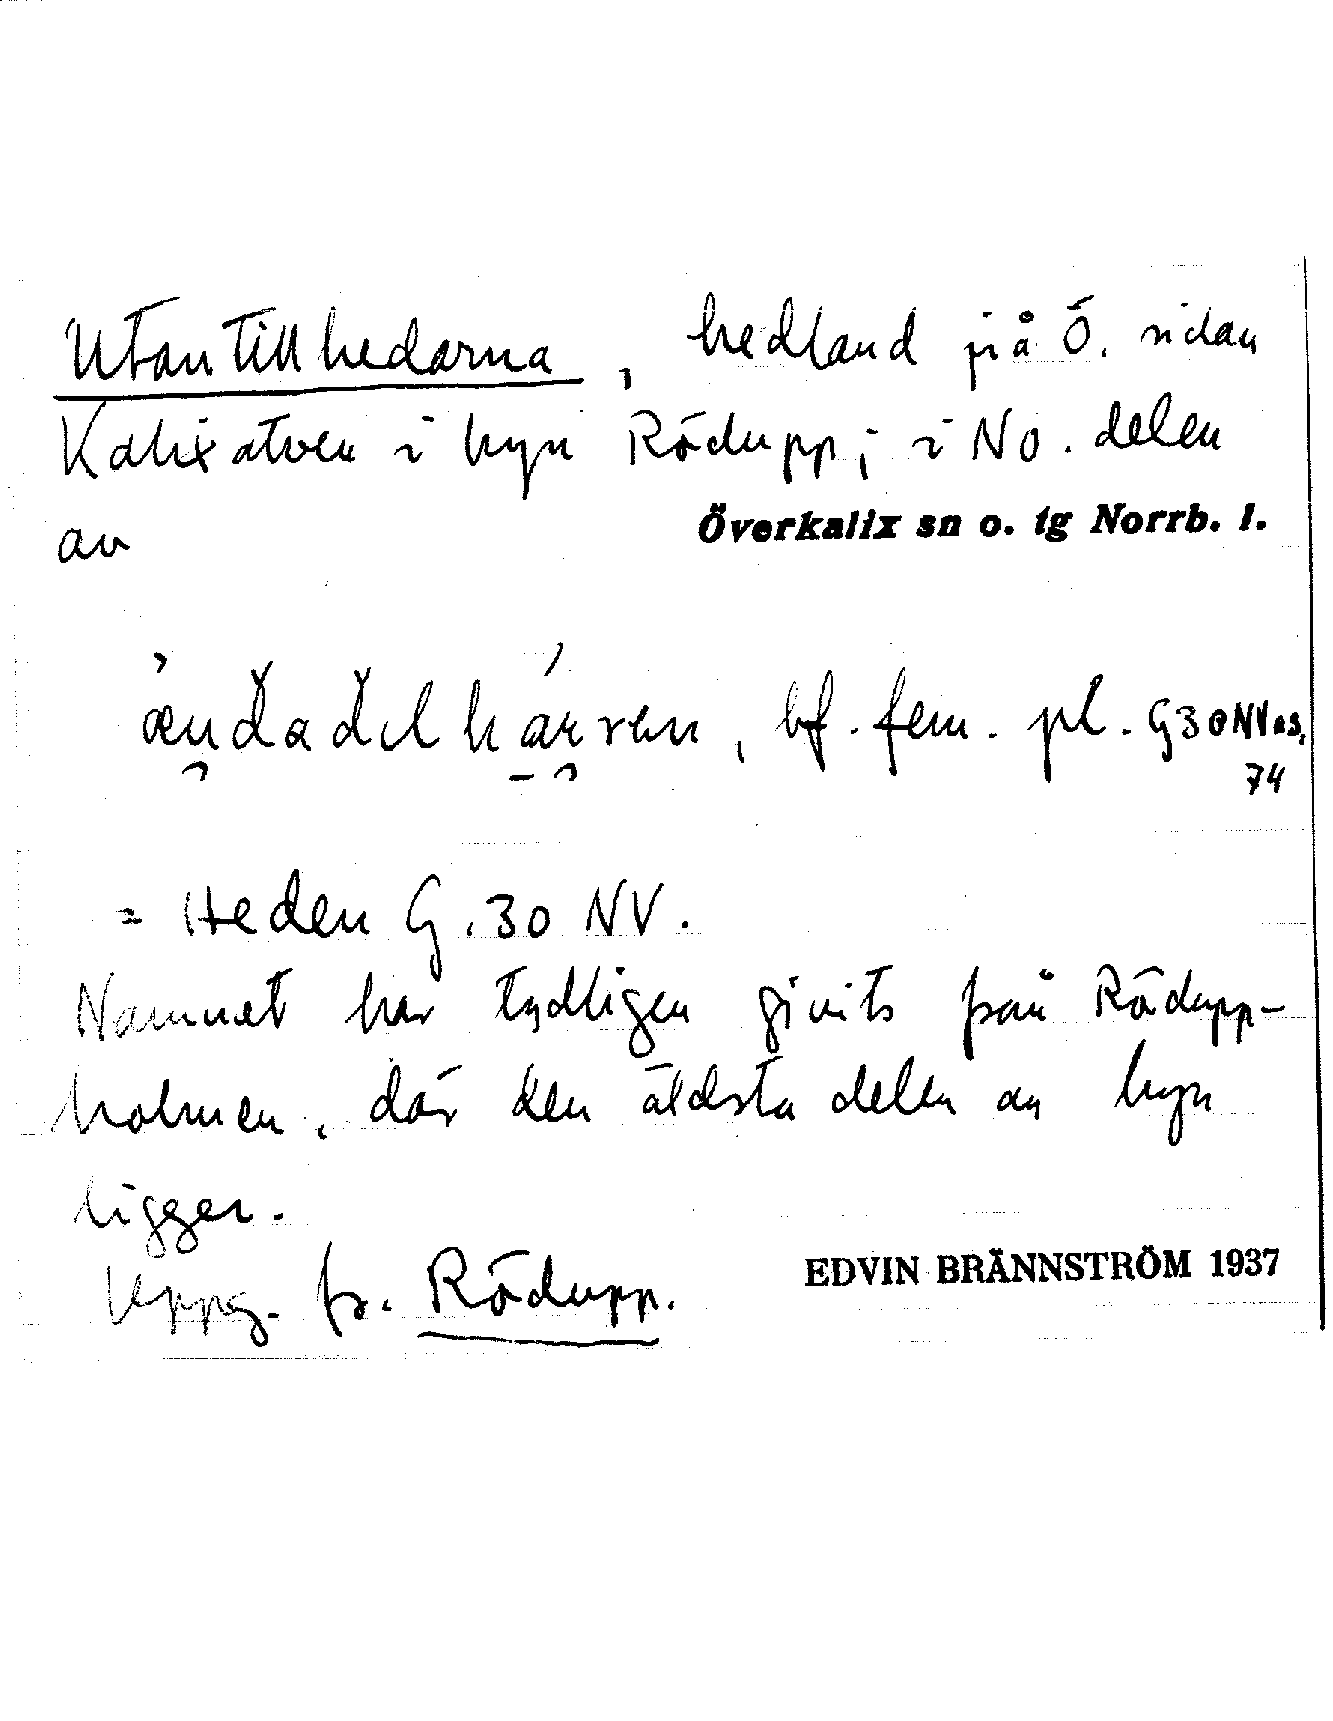 Utantillhedarna, hedland på Ö. sidan
Kalixälven i byn Rödupp, i NO. delen
av Överkalix sn o. tg Norrb. l.
bf. fem. pl. G30NV as, 74
= Heden G. 30 NV.
Namnet har tydligen givits från Rödupp-
holmen, där den äldsta delen av byn
ligger.
Uppg. fr. Rödupp.
EDVIN BRÄNNSTRÖM 1937